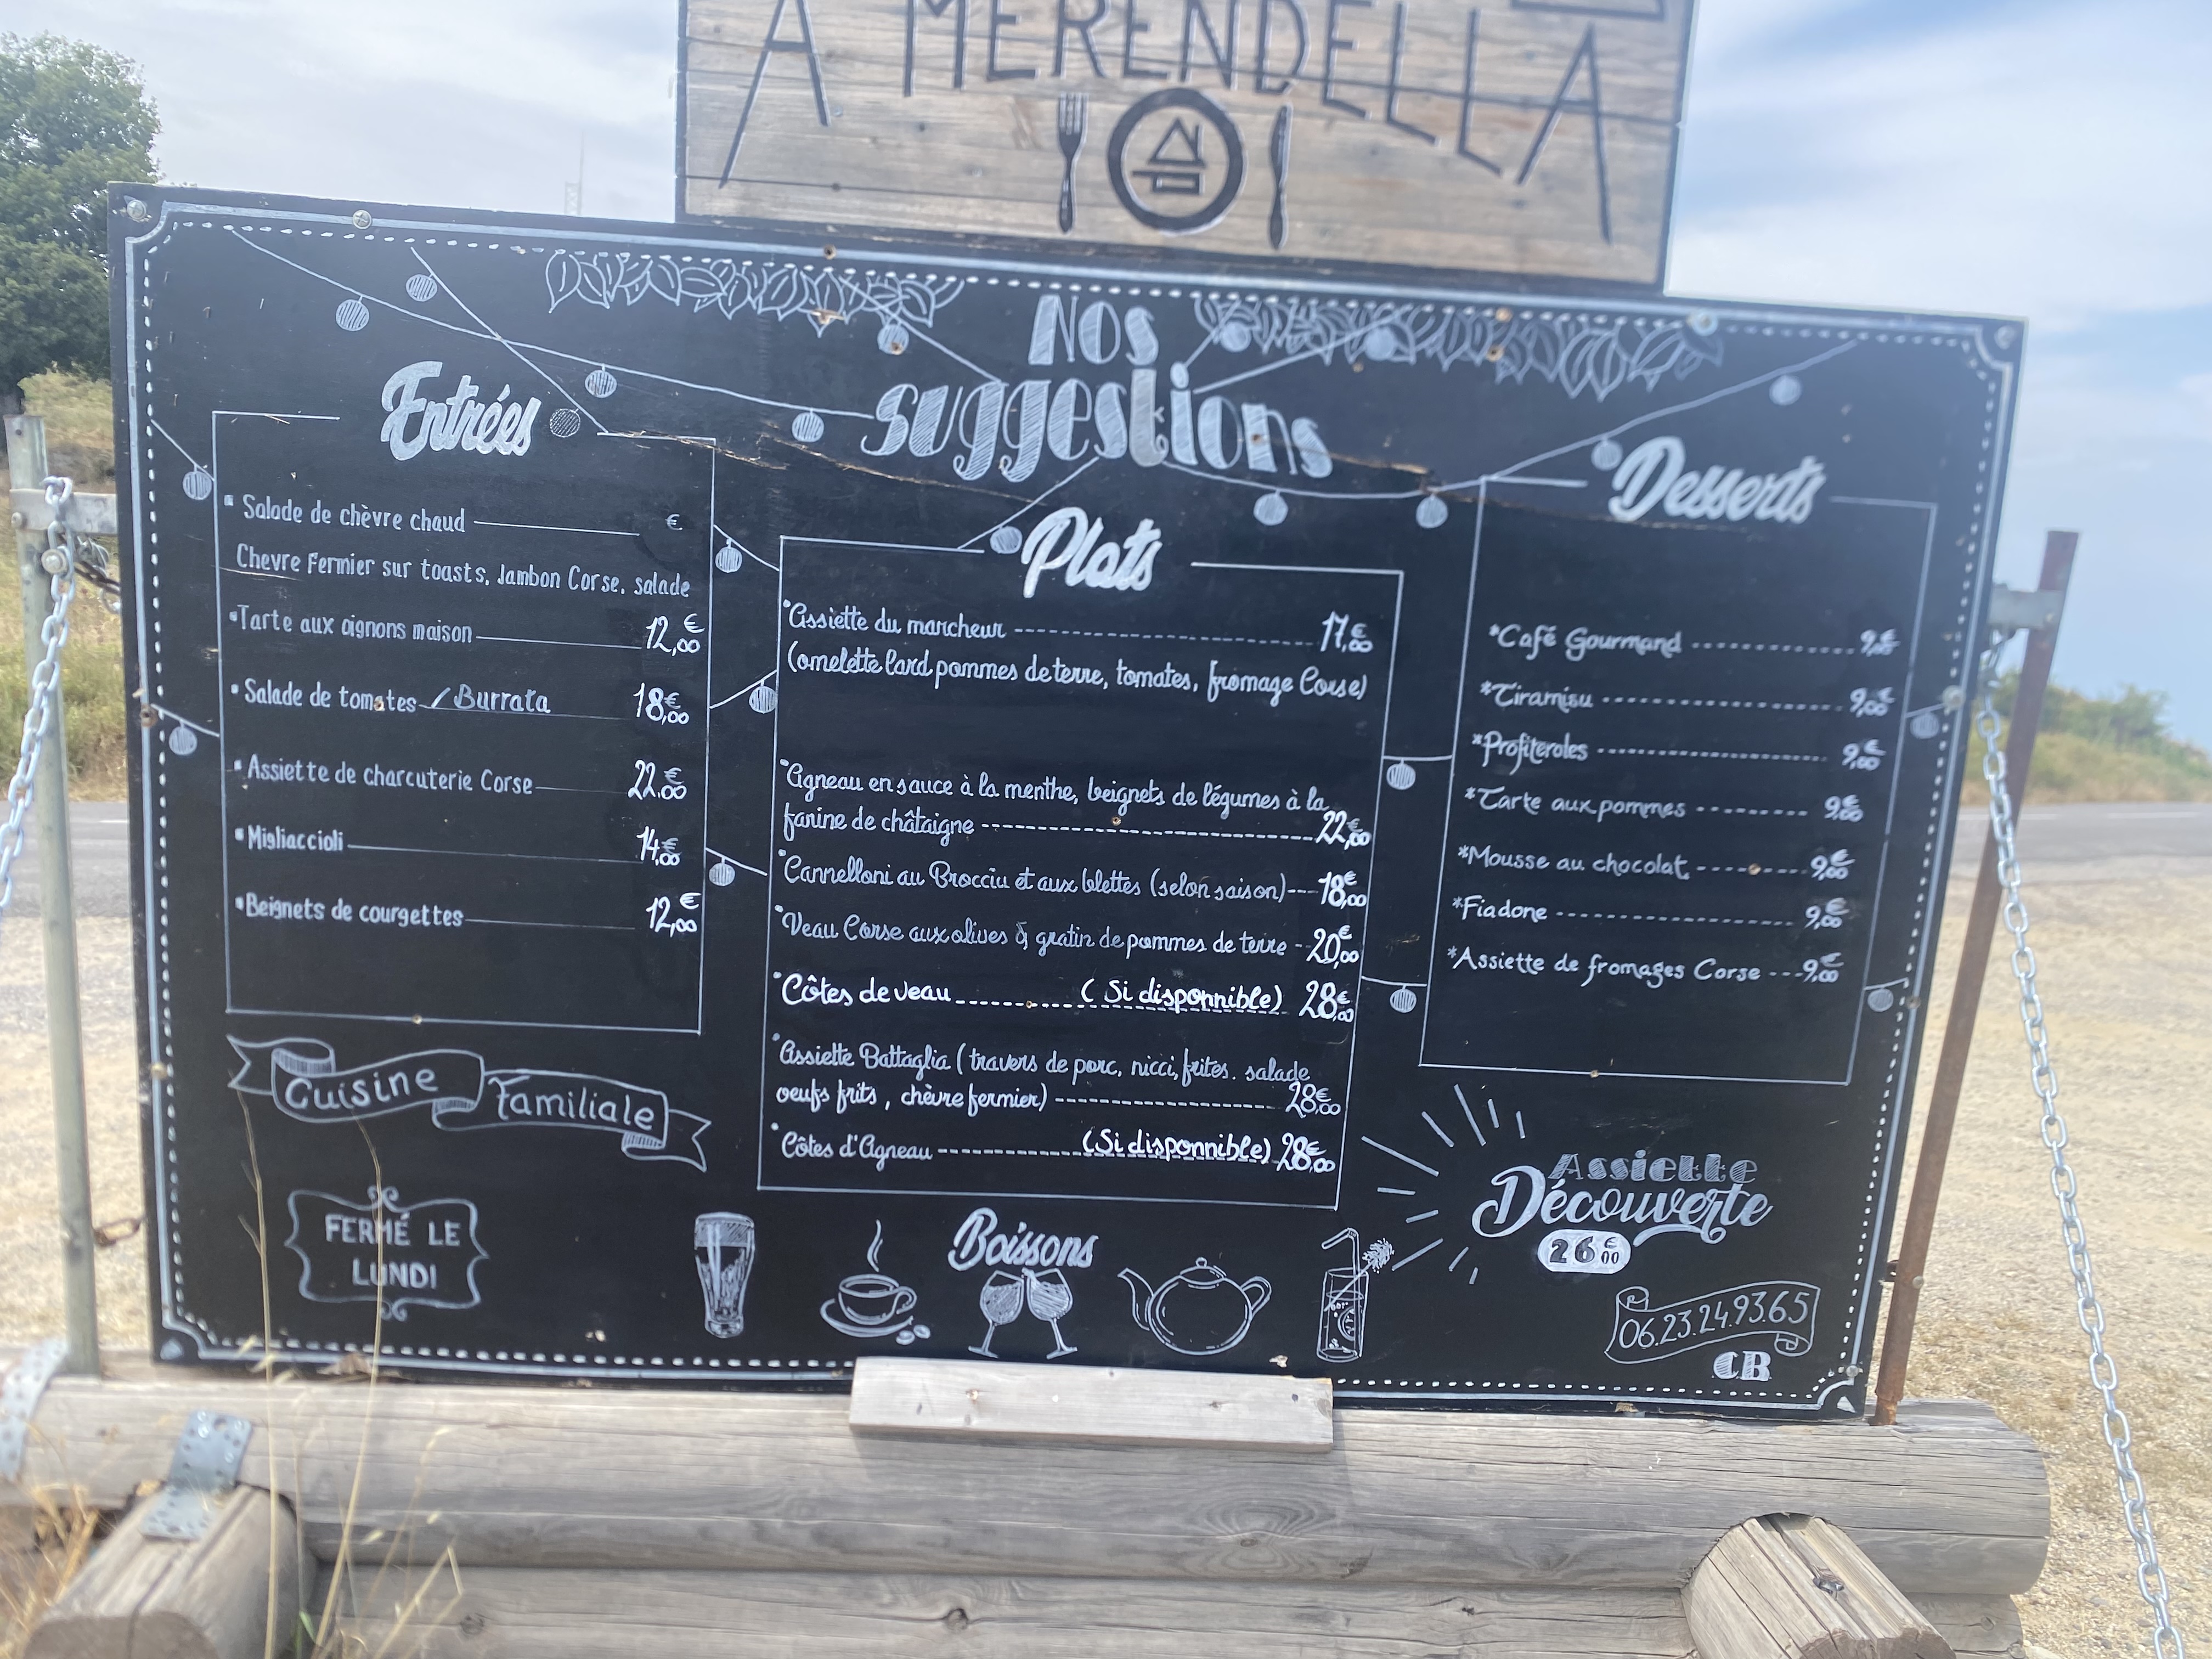 A MERENDELLA
Nos
suggestions
Entrées
* Salade de chèvre chaud €
Chevre Fermier sur toasts, Jambon Corse, salade
* Tarte aux oignons maison 12,00€
* Salade de tomates / Burrata 18,00€
* Assiette de charcuterie Corse 22.00€
* Migliaccioli 14,00€
* Beignets de courgettes 12,00€
Cuisine Familiale
FERMÉ LE
LUNDI
Plats
* Assiette du marcheur 17,00€
(omelette lard pommes de terre, tomates, fromage Corse)
* Agneau en sauce à la menthe, beignets de légumes à la
farine de châtaigne 22,00€
* Cannelloni au Brocciu et aux blettes (selon saison) 18,00€
* Veau Corse aux olives & gratin de pommes de terre 20,00€
* Côtes de veau (Si disponnible) 28,00€
* Assiette Battaglia (travers de porc, nicci, frites, salade
oeufs frits, chèvre fermier) 28,00€
* Côtes d'Agneau (Si disponnible) 28,00€
Boissons
Desserts
* Café Gourmand 9,00€
* Tiramisu 9,00€
* Profiteroles 9,00€
* Tarte aux pommes 9,00€
* Mousse au chocolat 9,00€
* Fiadone 9,00€
* Assiette de fromages Corse 9,00€
Assiette
Découverte
26€00
06.23.24.93.65
CB